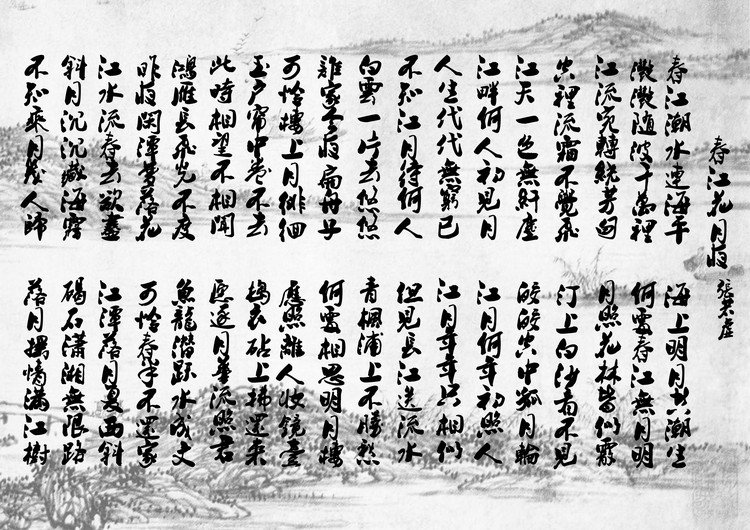 春江花月夜 張若虛
春江潮水連海平 海上明月共潮生
灩灩隨波千萬裡 何處春江無月明
江流宛轉繞芳甸 月照花林皆似霰
空裡流霜不覺飛 汀上白沙看不見
江天一色無纖塵 皎皎空中孤月輪
江畔何人初見月 江月何年初照人
人生代代無窮已 江月年年只相似
不知江月待何人 但見長江送流水
白雲一片去悠悠 青楓浦上不勝愁
誰家今夜扁舟子 何處相思明月樓
可怜樓上月徘徊 應照離人妝鏡臺
玉戶簾中卷不去 搗衣砧上拂還來
此時相望不相聞 願逐月華流照君
鴻雁長飛光不度 魚龍潛躍水成文
昨夜閑潭夢落花 可怜春半不還家
江水流春去欲盡 江潭落月復西斜
斜月沉沉藏海霧 碣石瀟湘無限路
不知乘月幾人歸 落月搖情滿江樹